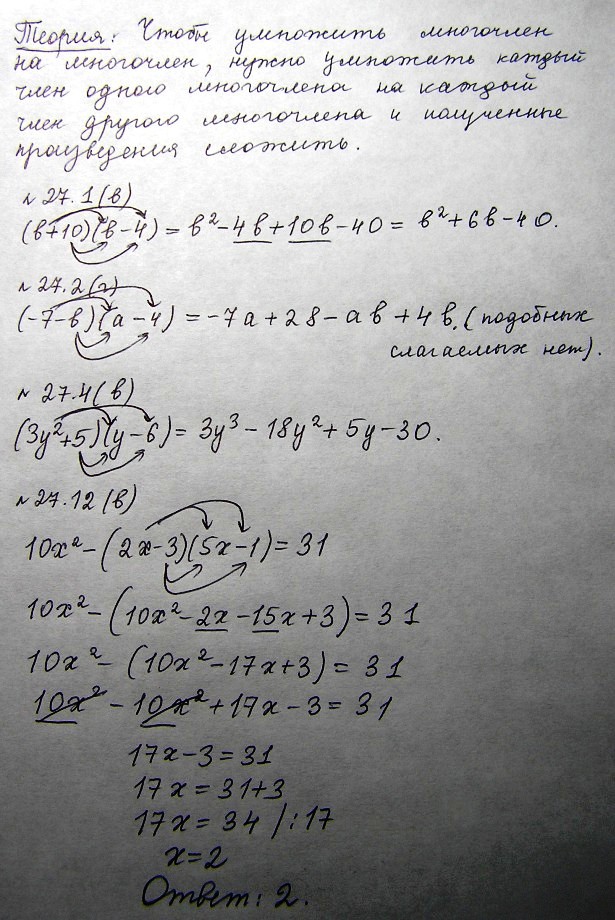 Теория: Чтобы умножить многочлен
на многочлен, нужно умножить каждый
член одного многочлена на каждый
член другого многочлена и полученные
произведения сложить.
№ 27.1(в)
(в+10)(в-4) = в²-4в+10в-40 = в²+6в-40.
№ 27.2(г)
(-7-в)(а-4) = -7а+28-ав+4в. (подобных
слагаемых нет).
№ 27.4(в)
(3y²+5)(y-6) = 3y³-18y²+5y-30.
№ 27.12(в)
10x²-(2x-3)(5x-1)=31
10x²-(10x²-2x-15x+3)=31
10x²-(10x²-17x+3)=31
10x²-10x²+17x-3=31
17x-3=31
17x=31+3
17x=34 /:17
x=2
Ответ: 2.